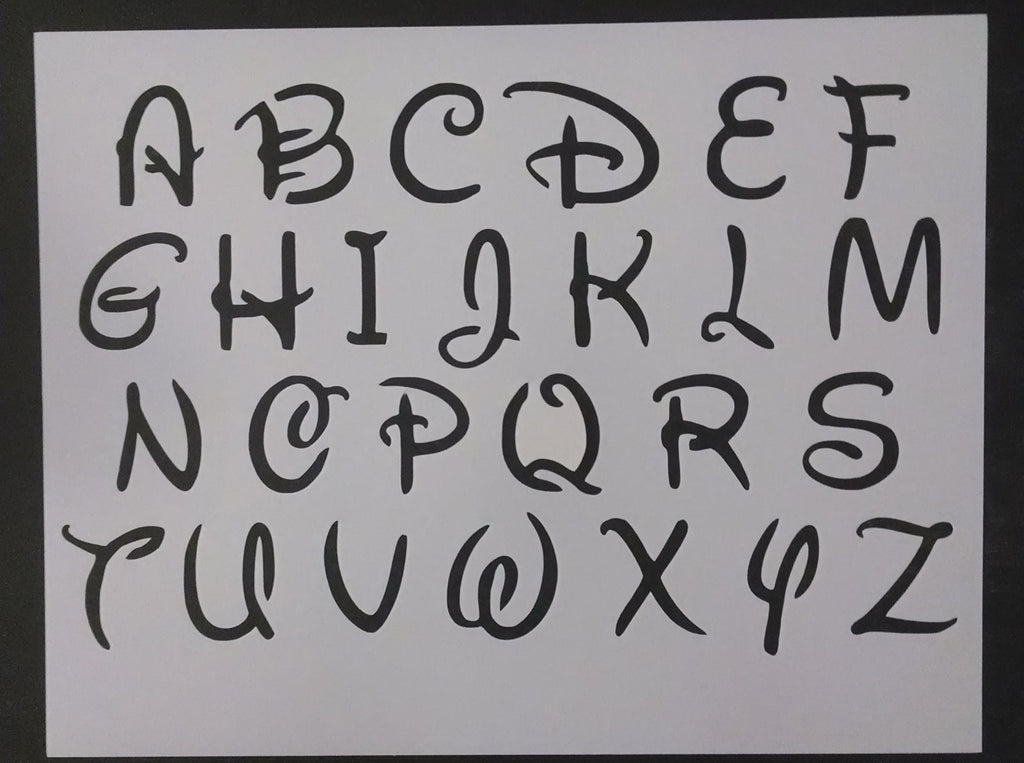 A B C D E F
G H I J K L M
N O P Q R S
T U V W X Y Z